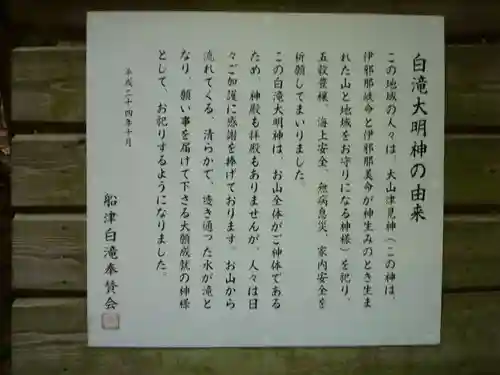 白滝大明神の由来
この地域の人々は、大山津見神（この神は、
伊邪那岐命と伊邪那美命が神生みのとき生ま
れた山と地域をお守りになる神様）を祀り、
五穀豊穣、海上安全、無病息災、家内安全を
祈願してまいりました。
この白滝大明神は、お山全体がご神体である
ため、神殿も拝殿もありませんが、人々は日
々ご加護に感謝を捧げております。お山から
流れてくる、清らかで、透き通った水が滝と
なり、願い事を届けて下さる大願成就の神様
として、お祀りするようになりました。
平成二十四年十月
船津白滝奉賛会